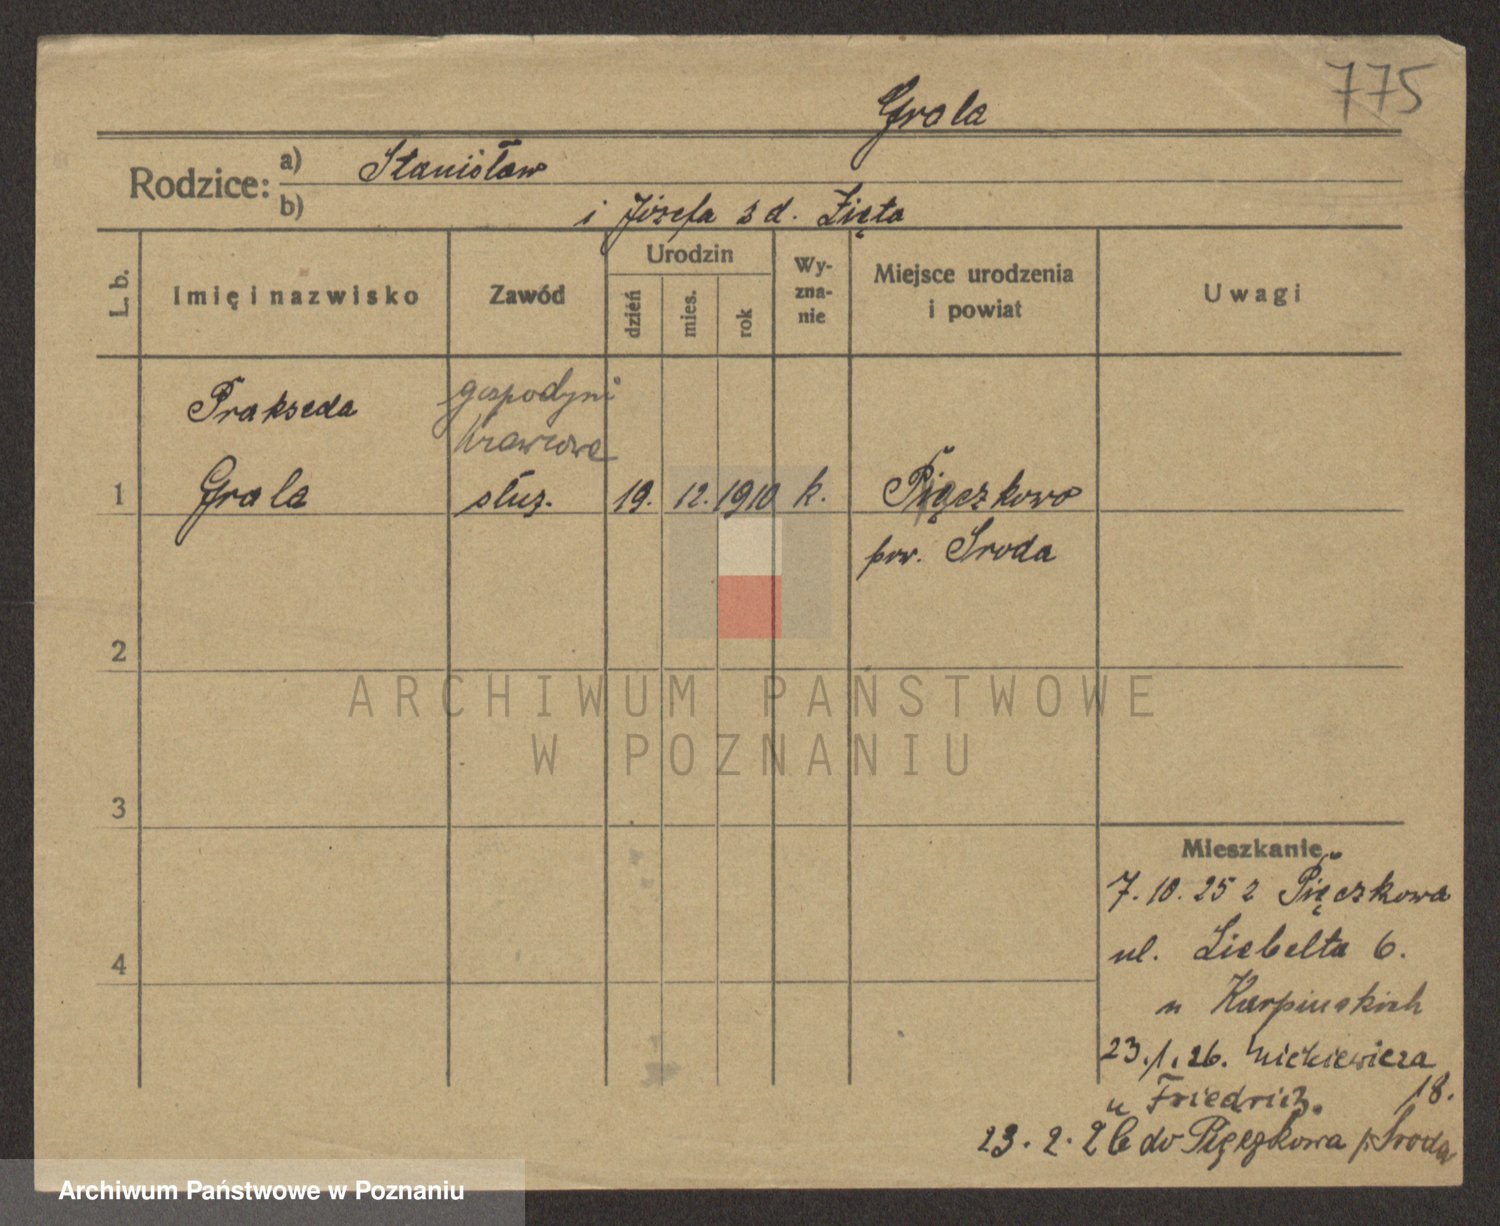 775
Grala
Rodzice: a) Stanisław
b) i Józefa z d. Zięta
L. b.
Imię i nazwisko
Zawód
Urodzin
dzień
mies.
rok
Wy-
zna-
nie
Miejsce urodzenia
i powiat
Uwagi
Prakseda
gospodyni
krawcowa
1 Grala służ. 19. 12. 1910 k. Pięczkowo
pow. Sroda
2
3
4
ARCHIWUM PAŃSTWOWE
W POZNANIU
Mieszkanie
7. 10. 25 z Pięczkowa
ul. Liebelta 6.
u Karpińskich
23. 1. 26. Mickiewicza
18.
u Friedrich.
23. 2. 26 do Pięczkowa p. Sroda
Archiwum Państwowe w Poznaniu